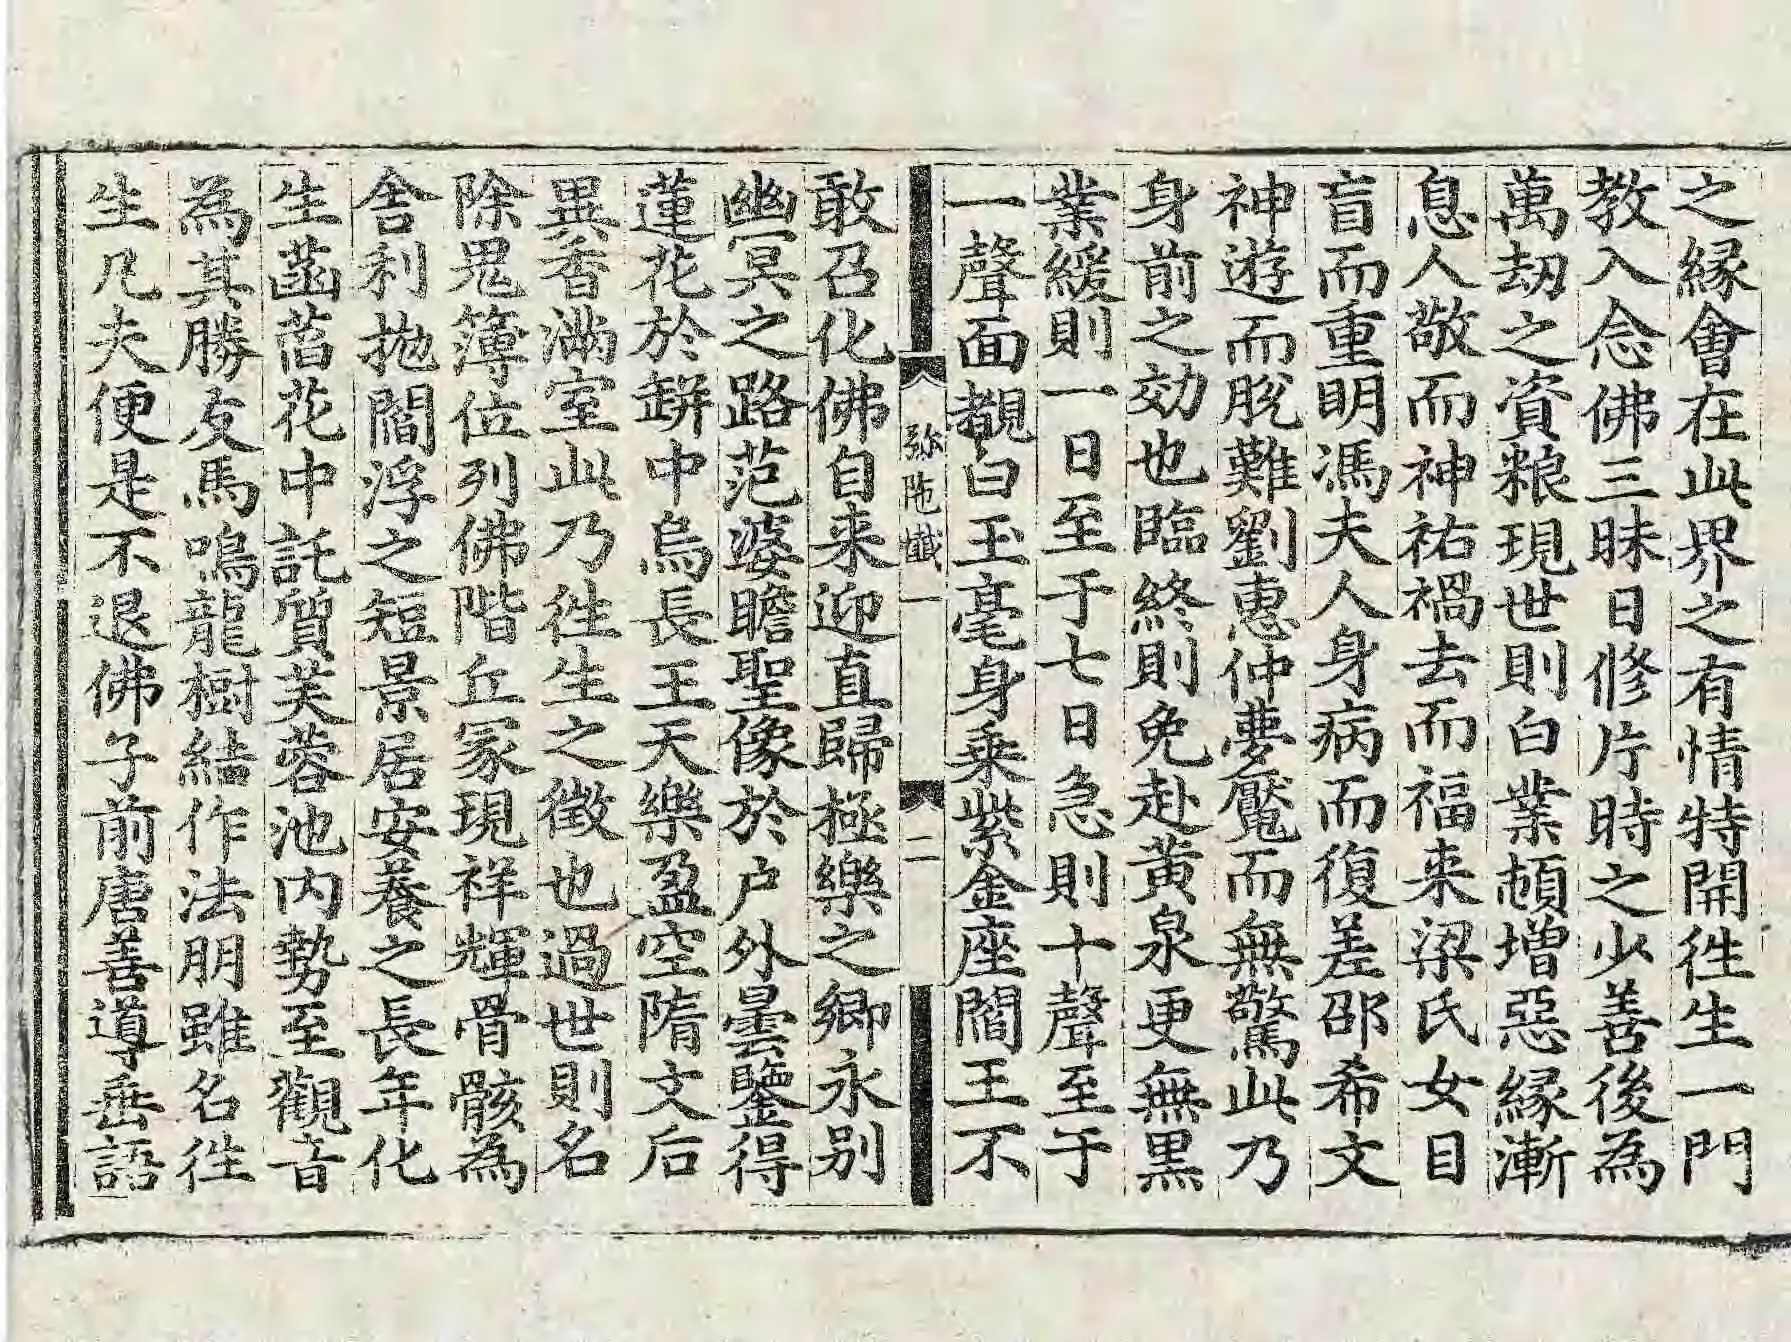 之縁會在此界之有情特開徃生一門
教入念佛三昧日修片時之少善後為
萬劫之資粮現世則白業頓增惡縁漸
息人敬而神祐禍去而福来梁氏女目
盲而重明馮夫人身病而復差邵希文
神遊而脫難劉惠仲夢魘而無驚此乃
身前之効也臨終則免赴黃泉更無黑
業緩則一日至于七日急則十聲至于
一聲面覩白玉毫身乗紫金座閻王不
弥陁懴一 二
敢召化佛自来迎直歸極樂之卿永别
幽冥之路范婆瞻聖像於户外曇鑒得
蓮花於缾中烏長王天樂盈空隋文后
異香滿室此乃徃生之徵也過世則名
除鬼簿位列佛階丘冡現祥輝骨骸為
舍利抛閻浮之短景居安養之長年化
生菡萏花中託質芙蓉池内勢至觀音
為其勝友馬鳴龍樹結作法朋雖名徃
生凡夫便是不退佛子前唐善導垂語